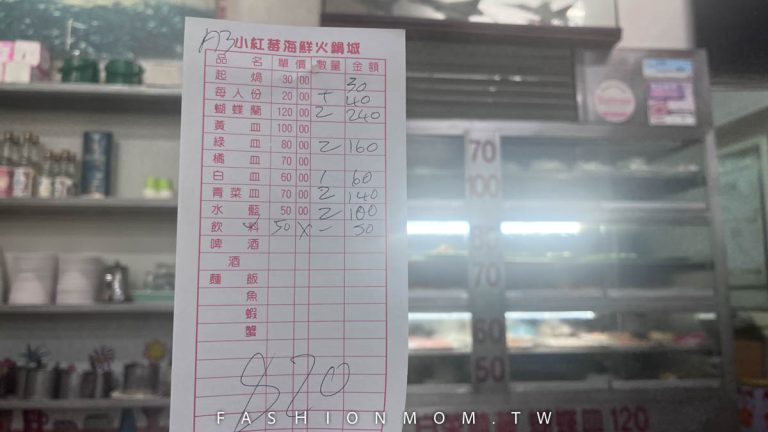 A3 小紅莓海鮮火鍋城
品名 單價 數量 金額
起鍋 30 00 30
每人份 20 00 + 40
蝴蝶蘭 120 00 2 240
黃皿 100 00
綠皿 80 00 2 160
橘皿 70 00
白皿 60 00 1 60
青菜皿 70 00 2 140
水藍 50 00 2 100
飲料 50 X - 50
啤酒
酒
麵飯
魚
蝦
蟹
820
70
100
70
60
50
皿120
FASHIONMOM.TW